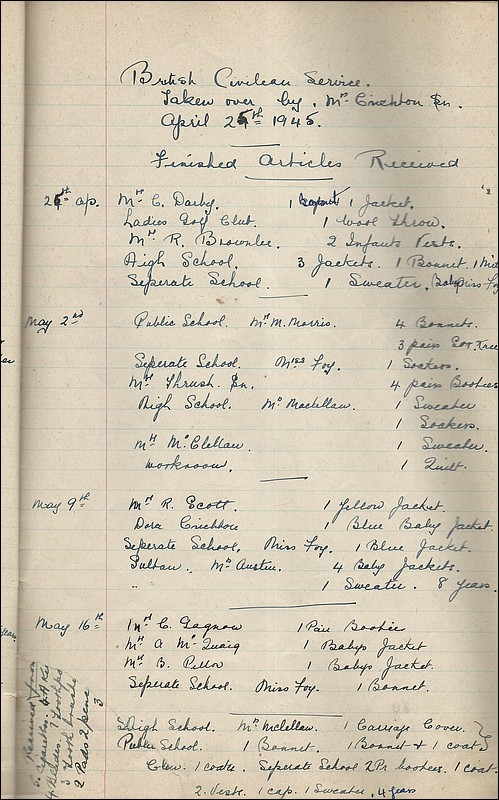 British Civilian Service.
Taken over by. Mrs Crichton Sn.
April 25th 1945.
Finished Articles Received
25th ap. Mrs C. Darby. 1 Jacket.
Ladies Golf Club. 1 Wool Throw.
Mrs R. Brownlee. 2 Infants Vests.
High School. 3 Jackets. 1 Bonnet.
Seperate School. 1 Sweater.
May 2nd Public School. Mrs M. Morris. 4 Bonnets.
3 pairs
Seperate School. Miss Foy. 1 Soakers.
Mrs Thrush. Sn. 4 pairs Booties
High School. Mrs Maclellan. 1 Sweater
1 Soakers.
Mrs McClellan. 1 Sweater.
workroom. 1 Quilt.
May 9th Mrs R. Scott. 1 Yellow Jacket.
Dora Crichton 1 Blue Baby Jacket.
Seperate School. Miss Foy. 1 Blue Jacket.
Mrs Austin. 4 Baby Jackets.
" 1 Sweater. 8 years.
May 16th Mrs C. Gagnon 1 Pair Booties
Mrs A McQuaig 1 Babys Jacket
Mrs B. 1 Babys Jacket
Seperate School. Miss Foy. 1 Bonnet.
High School. Mrs Mclellan. 1 Carriage Cover.
Public School. 1 Bonnet. 1 Bonnet & 1 coat
1 coat. Seperate School 2 Pr booties. 1 coat.
2 Vests. 1 cap. 1 Sweater. 4 years
Received from
3 Tooth brushes
3